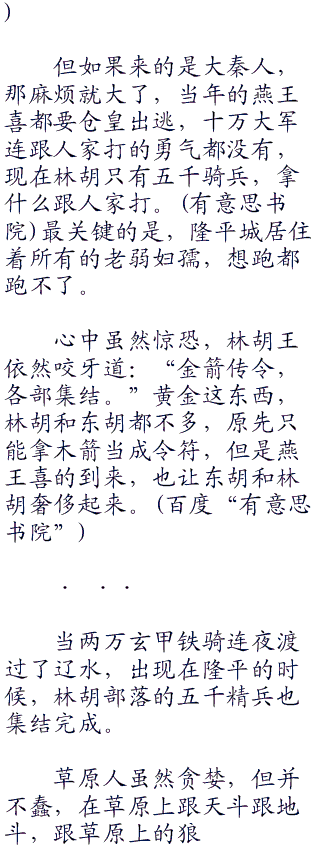 )
但如果来的是大秦人，
那麻烦就大了，当年的燕王
喜都要仓皇出逃，十万大军
连跟人家打的勇气都没有，
现在林胡只有五千骑兵，拿
什么跟人家打。(有意思书
院)最关键的是，隆平城居住
着所有的老弱妇孺，想跑都
跑不了。
心中虽然惊恐，林胡王
依然咬牙道：“金箭传令，
各部集结。”黄金这东西，
林胡和东胡都不多，原先只
能拿木箭当成令符，但是燕
王喜的到来，也让东胡和林
胡奢侈起来。(百度“有意思
书院”)
. . .
当两万玄甲铁骑连夜渡
过了辽水，出现在隆平的时
候，林胡部落的五千精兵也
集结完成。
草原人虽然贪婪，但并
不蠢，在草原上跟天斗跟地
斗，跟草原上的狼